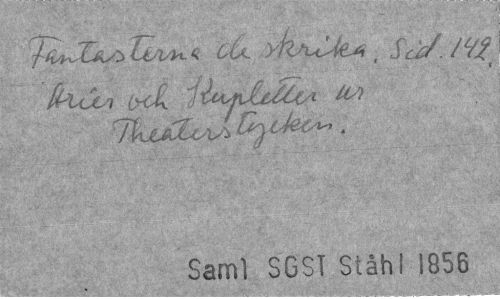 Fantasterna de skrika. Sid. 142.
Arier och Kupletter ur
Theaterstycken.
Saml SGST Ståhl 1856